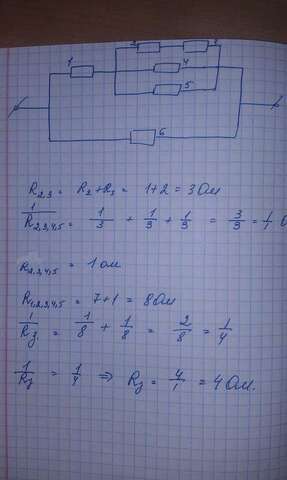 2 3
1 4
5
6
R₂,₃ = R₂ + R₃ = 1+2 = 3 Ом
1/R₂,₃,₄,₅ = 1/3 + 1/3 + 1/3 = 3/3 = 1/1
R₂,₃,₄,₅ = 1 ом
R₁,₂,₃,₄,₅ = 7+1 = 8 Ом
1/Rэ = 1/8 + 1/8 = 2/8 = 1/4
1/Rэ = 1/4 ⇒ Rэ = 4/1 = 4 Ом.